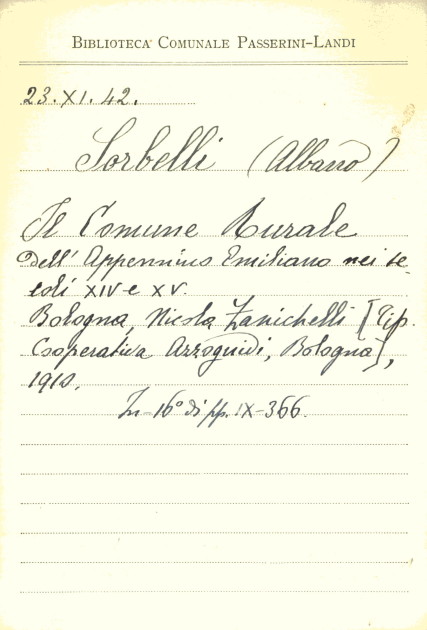 BIBLIOTECA COMUNALE PASSERINI-LANDI
23. XI. 42.
Sorbelli (Albano)
Il Comune Rurale
dell' Appennino Emiliano nei se-
coli XIV e XV.
Bologna, Nicola Zanichelli [Tip.
Cooperativa Azzoguidi, Bologna],
1910.
In-16° di pp. IX-366.